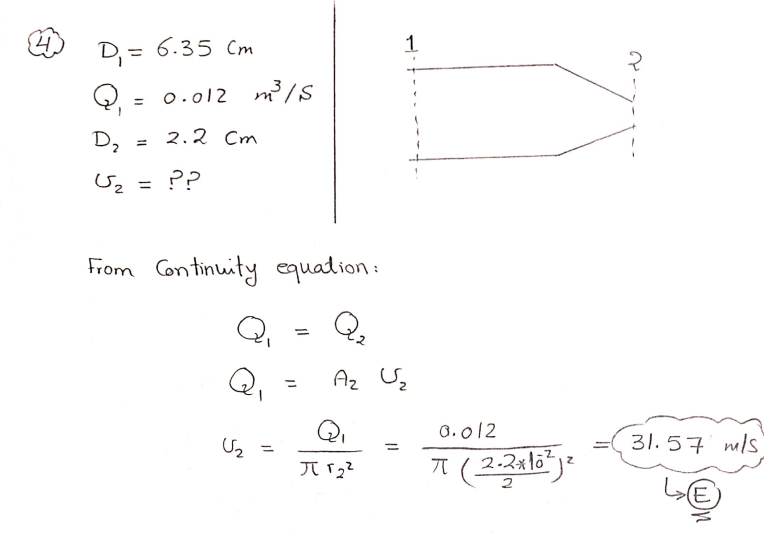 4 D₁ = 6.35 Cm
Q₁ = 0.012 m³/S
D₂ = 2.2 Cm
U₂ = ??
1
2
From Continuity equation:
Q₁ = Q₂
Q₁ = A₂ U₂
U₂ = Q₁ / π r₂² = 0.012 / π (2.2*10⁻² / 2)² = 31.57 m/s
↳ E